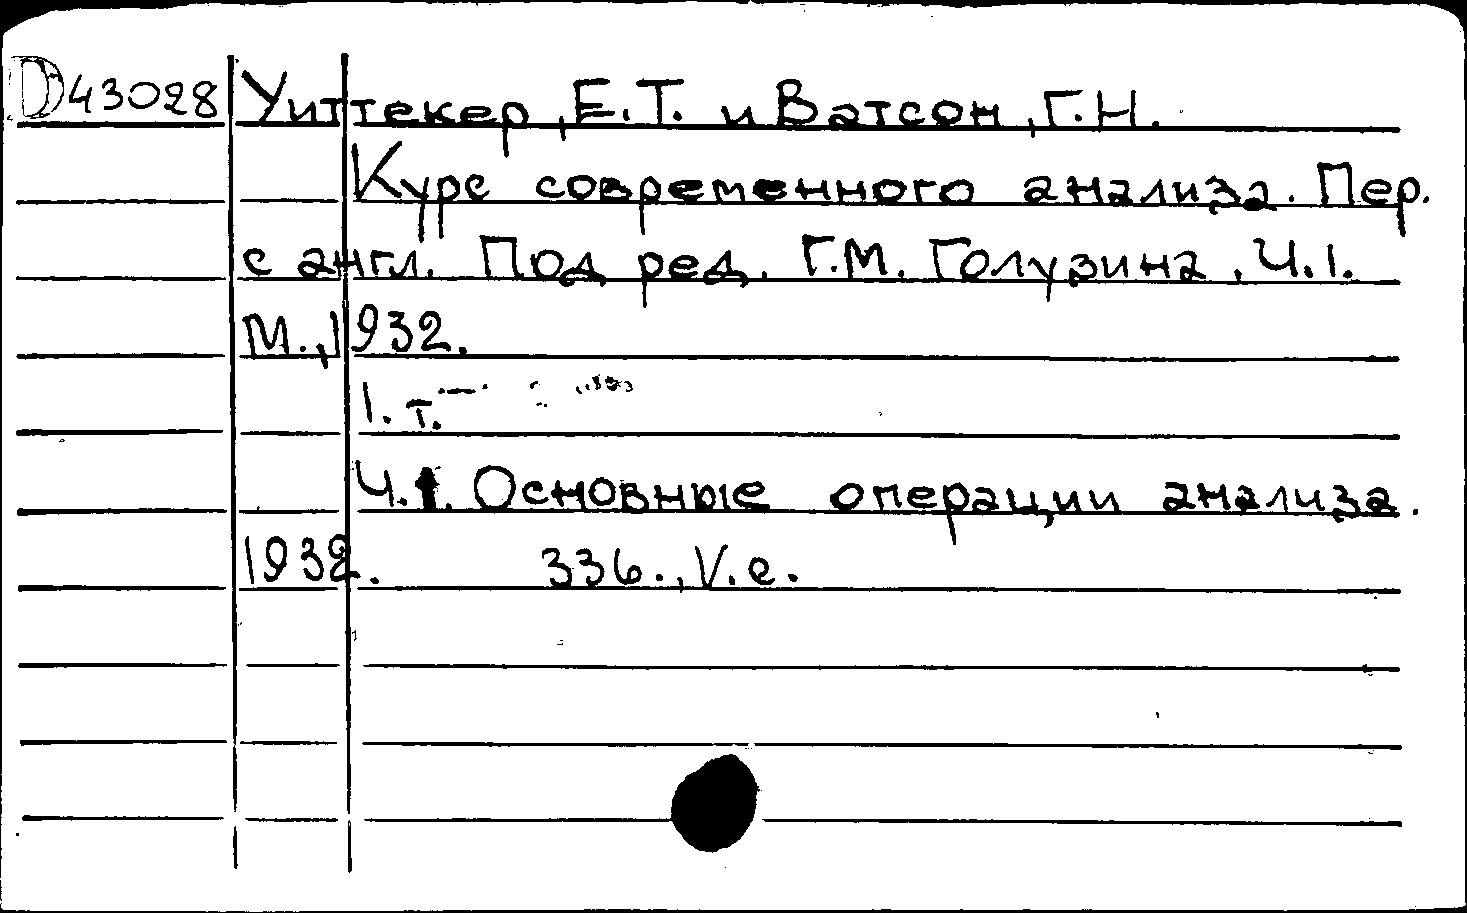 D43028 Уиттекер, Е.Т. и Ватсон, Г.Н.
Курс современного анализа. Пер.
с англ. Под ред. Г.М. Голузина. Ч.1.
М., 1932.
1. т.
Ч.1. Основные операции анализа.
1932. 336., V.e.